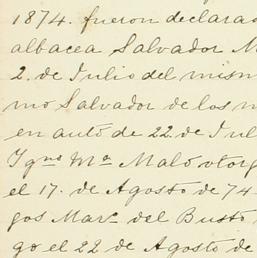 1874. fueron declarad
albacea Salvador M
2. de Julio del mism
mo Salvador de los m
en auto de 22 de Jul
Ygno Ma Malo otorg
el 17. de Agosto de 74
gos Marc. del Busto
go el 22 de Agosto de